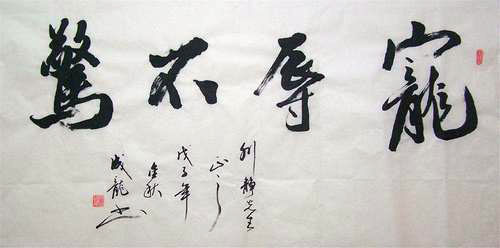 寵辱不驚
静先生
正之
戊子年
金秋
成龍书